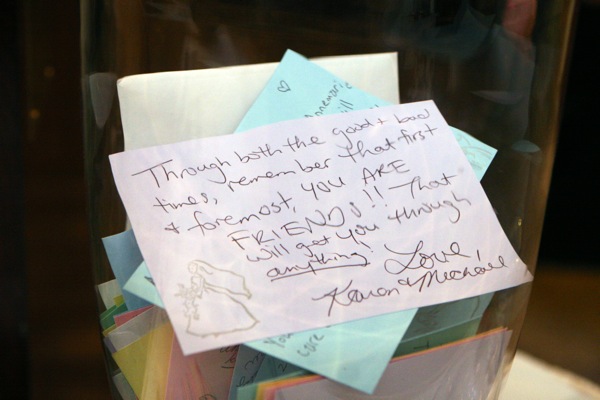 Through both the good & bad
times, remember that first
& foremost, YOU ARE
FRIENDS!! That
will get you through
anything!
Love,
Karen & Michael